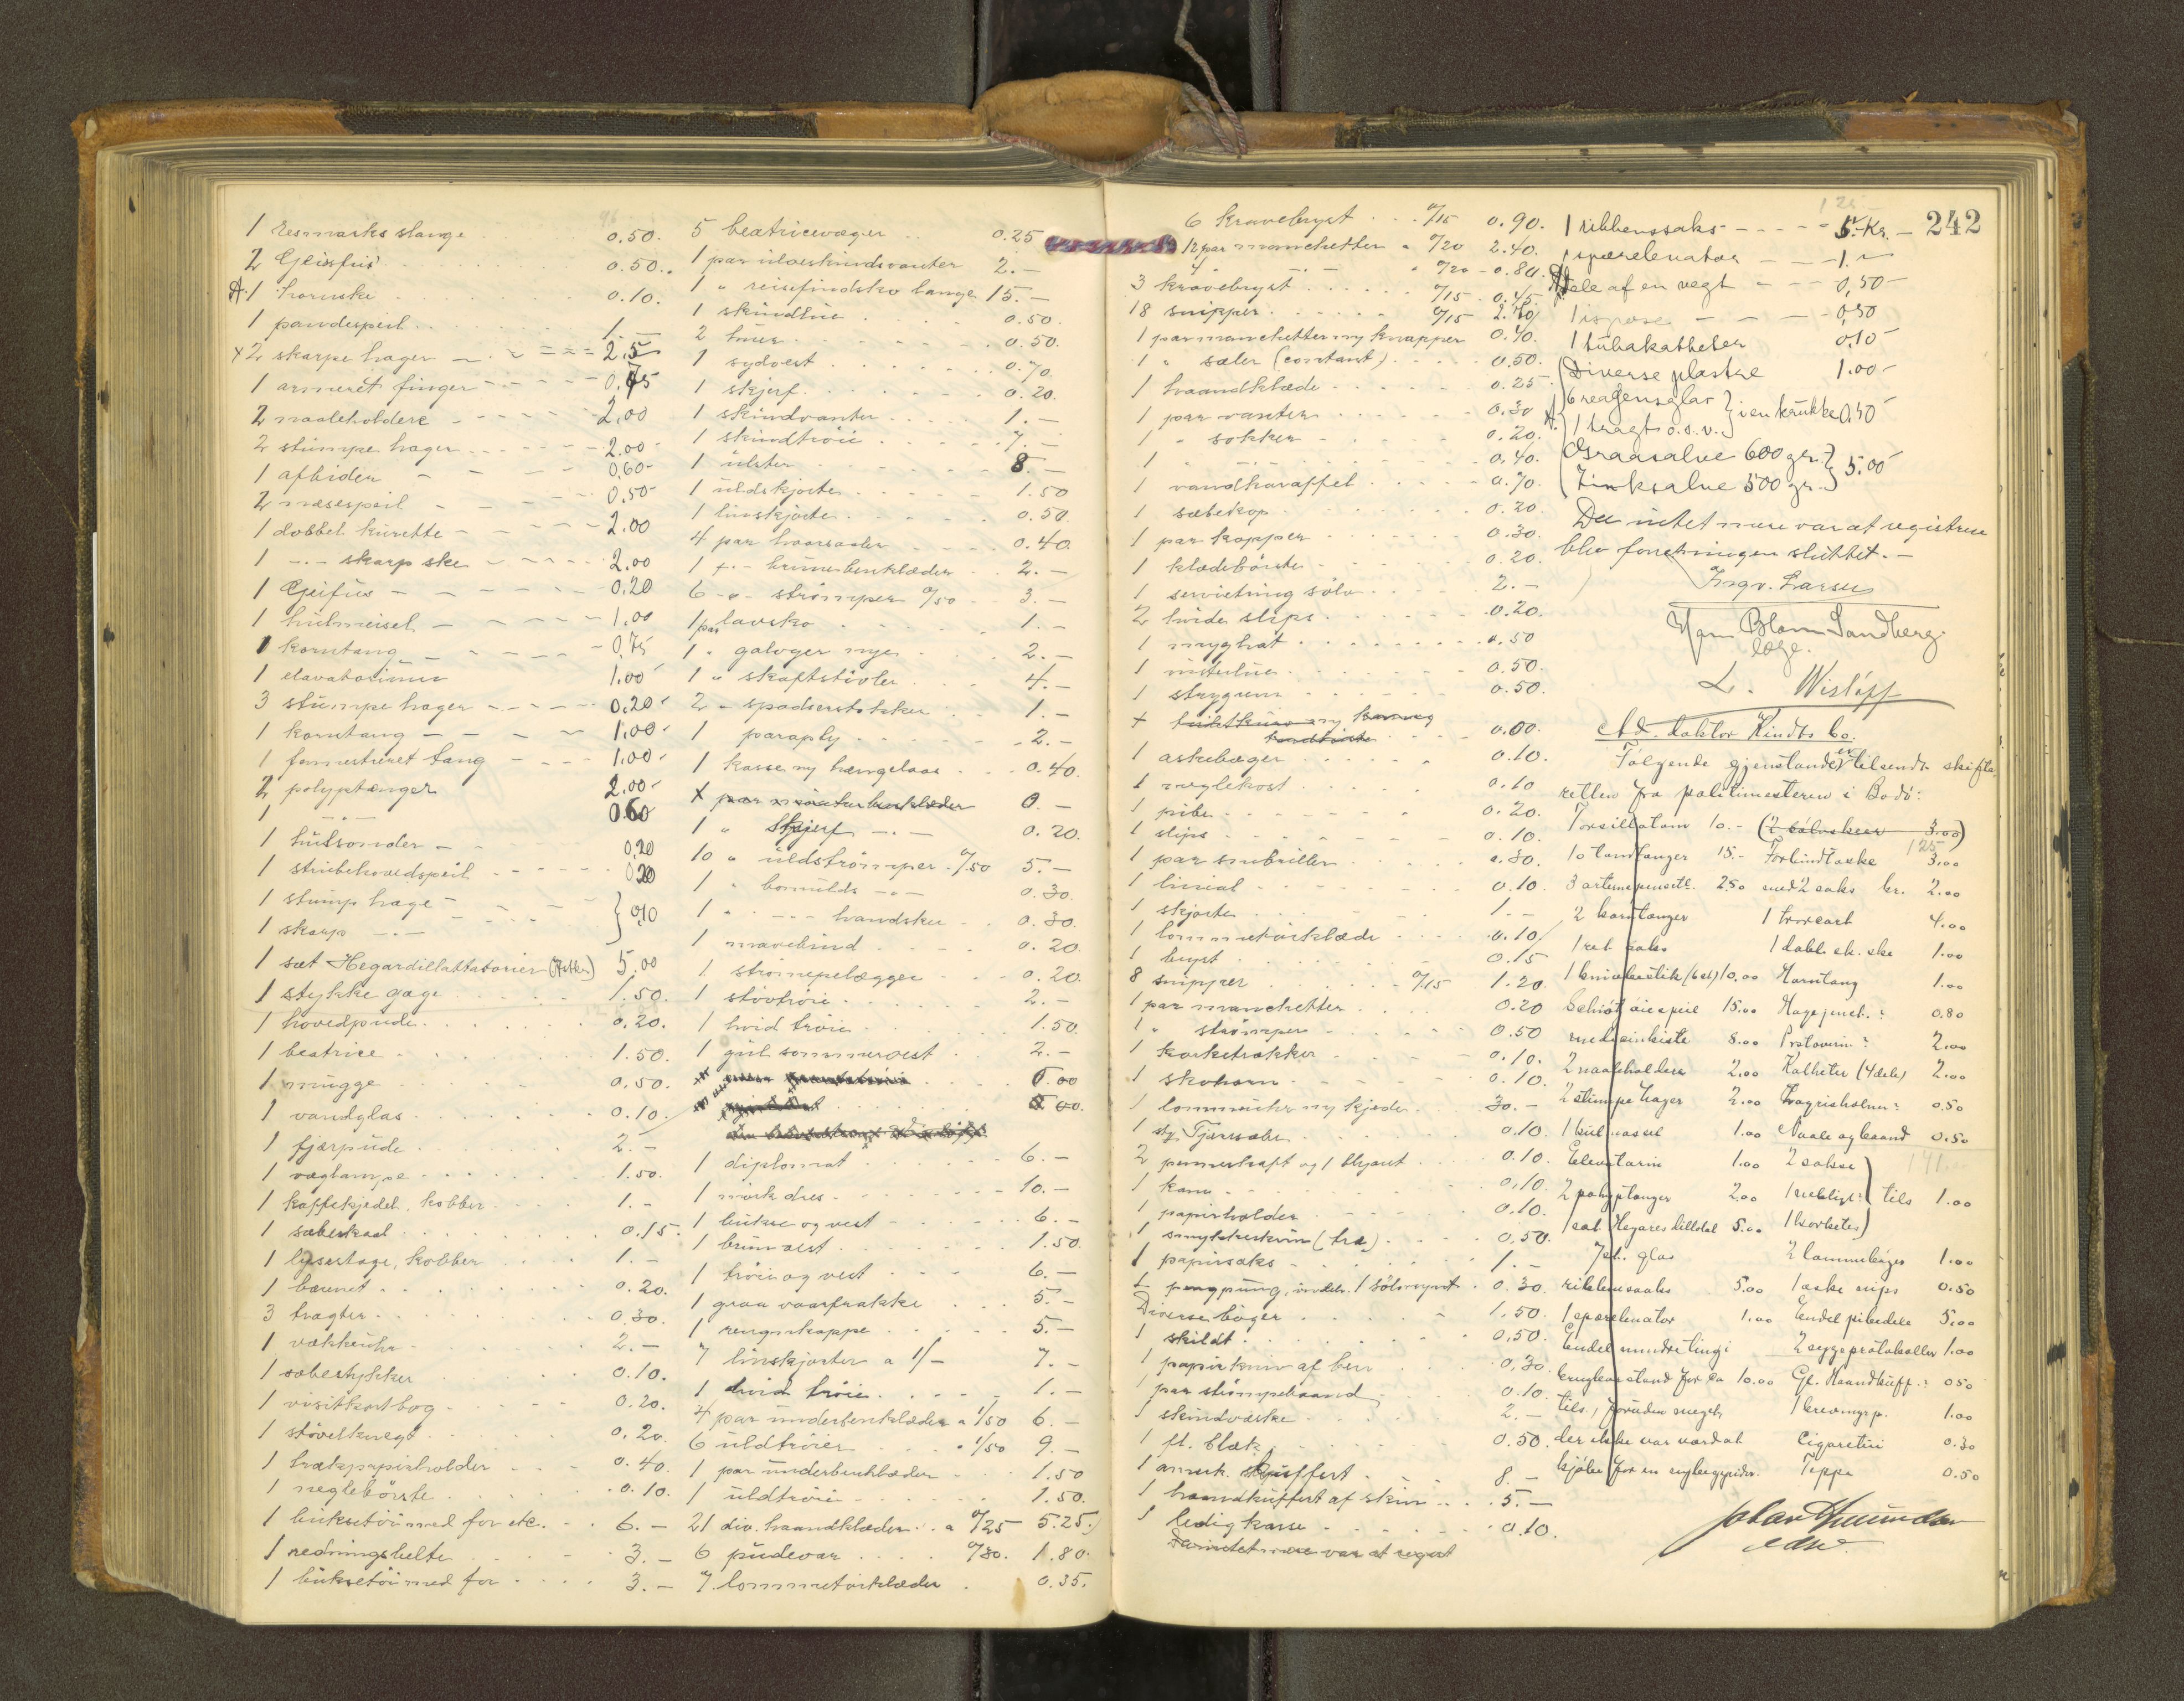 1 Esmarks slange 0.50.
2 Geisfüs 0.50.
A. 1 horuske 0.10.
1 pandespeil 1.—
x 2 skarpe hager 2.5
1 armeret finger 0.75
2 naaleholdere 2.00
2 stümpe hager 2.00
1 afbider 0.60
2 næsespeil 0.50
1 dobbel kürette 2.00
1 -„- skarp ske 2.00
1 Geifüs 0.20
1 hülmeisel 1.00
1 korntang 0.75
1 elavatorium 1.00
3 stümpe hager 0.20
1 korntang 1.00
1 fennestreret tang 1.00
2 polyptænger 2.00
1 -„- 0.60
1 hülsonder 0.20
1 strübehovedspeil 0.20
1 stümp hage
1 skarp -„- } 0.10
1 sæt Hegardillattatorier 5.00
1 stykke gage 1.50.
1 hovedpüde 0.20.
1 beatrice 1.50.
1 mügge 0.50.
1 vandglas 0.10.
1 fjærpüde 2.—
1 væglampe 1.50.
1 kaffekjedel, kobber 1.—
1 sæbeskaal 0.15.
1 lysestage, kobber 1.—
1 bæret 0.20.
3 tragter 0.30.
1 vækkeuhr 2.—
1 sæbestykker 0.10.
1 visitkortbog 0.20.
1 støvelknegt 0.20.
1 trækpapirholder 0.40.
1 neglebørste 0.10.
1 büksetöi med for etc. 6.—
1 redningsbelte 3.—
1 büksetöi med for 3.—
5 beatricevæger 0.25
1 par ülveskindsvanter 2.—
1 „ reisefindsko lange 15.—
1 skindhüe 0.50.
2 hüer 0.50.
1 sydvest 0.70.
1 skjerf 0.20.
1 skindvanter 1.—
1 skindtröie 7.—
1 ülster 8.—
1 üldskjorte 1.50
1 linskjorte 0.50
4 par haarsaaler 0.40.
1 -„- brüne benklæder 2.—
6 -„- strömper a/50 3.—
1 par lavsko 1.—
1 „ galoger nye 2.—
1 „ skaftstövler 4.—
2 „ spadserstokker 1.—
1 paraply 2.—
1 kasse m/ hængelaas 0.40.
x par vinterbenklæder 0.—
1 „ skjerf -„- 0.20.
10 „ üldströmper a/50 5.—
1 „ bomülds -„- 0.30.
1 „ -„- handsker 0.30.
1 mavebind 0.20.
1 strömpelægger 0.20.
1 stövtröie 2.—
1 hvid tröie 1.50.
1 gül sommervest 2.—
0.00
1 diplomat 6.—
1 mörk dres 10.—
1 bükse og vest 6.—
1 brün vest 1.50.
1 tröie og vest 6.—
1 graa vaarfrakke 5.—
1 regnkappe 5.—
7 linskjorter a 1/— 7.—
1 hvid tröie 1.—
4 par ünderbenklæder a 1/50 6.—
6 üldtröier a 1/50 9.—
1 par ünderbenklæder 1.50
1 üldtröie 1.50.
21 div. haandklæder a 0/25 5.25
6 püdevar 0/30. 1.80.
7 lommetörklæder 0.35.
6 kravebryst 0/15 0.90.
12 par manchetter a 0/20 2.40.
4 „ — „ 0/20 - 0.80.
3 kravebryst 0/15 - 0.45.
18 snipper 0/15 2.70
1 par manchetter m/ knapper 0.40.
1 „ sæler (contant) 0.50.
1 haandklæde 0.25
1 par vanter 0.30
1 „ sokker 0.20.
1 „ 0.40.
1 vandkaraffel 0.70.
1 sæbekop 0.20
1 par kopper 0.30.
1 klædebörste 0.20.
1 servietring sölv 2.—
2 hvide slips 0.20.
1 myghat 0.50
1 vinterhüe 0.50.
1 strygrem 0.50.
x 0.00
1 askebæger 0.10.
1 neglekost 0.10
1 pibe 0.20.
1 slips 0.10.
1 par snebriller 0.30.
1 linial 0.10
1 skjorte 1.—
1 lommetörklæde 0.10
1 bryst 0.15
8 snipper 0/15 1.20
1 par manchetter 0.20
1 „ strömper 0.50
1 korketrækker 0.10.
1 skohorn 0.10.
1 lommeuhr m/ kjede 30.—
1 st. Tjæresæbe 0.10.
2 penneskaft og 1 blyant 0.10.
1 kam 0.10.
1 papirholder 0.10.
1 smykkeskrin (træ) 0.50.
1 papirsaks 1.—
1 pengpüng, inden. 1 sölvmynt 0.30.
Diverse böger 1.50.
1 skildt 0.50.
1 papirkniv af ben 0.30.
1 par strömpebaand 0.10.
1 skindvæske 2.—
1 fl. blæk 0.50.
1 amerk. küffert 8.—
1 haandküffert af skin 5.—
1 ledig kasse 0.10.
Da intet mere var at regist
242
1 ribbenssaks 5.- Kr.
1 spæcelevator 1.—
Dele af en vegt 0,50
1 ispose 0,50
1 tübakatheter 0,10
Diverse plastre 1.00
6 reagensglas } i en krükke 0,40
1 tragt o.s.v.
Graasalve 600 gr. } 5.00
Zinksalve 500 gr.
Da intet mere var at registrere
blev forretningen sluttet. —
Ingv. Larsen
Herm Blom Sandberg.
læge.
L. Wislöff
Ad. doktor Kindts bo.
Følgende gjenstande er tilsendt skifte-
retten fra politimesteren i Bodö:
10.— (2 sölvskeer 3.00)
10 tandtænger 15.- Forbindtaske 3.00
3 arteriepincett. 2.50 med 2 saks kr. 2.00
2 korntænger 1 trocart 4.00
1 ret saks 1 dobb. sk. ske 1.00
1 knivbestik (6 st) 10.00 Korntang 1.00
Schiötz öiespeil 15.00 0.80
medicinkiste 8.00 2.00
2 naaleholdere 2.00 Katheter (4 dele) 2.00
2 stümpe hager 2.00 0.50
1 hülmeisel 1.00 Naale og baand 0.50
Elevatorie 1.00 2 sakse
2 polyptænger 2.00 tils 1.00
1 sæt Hegares dilldal 5.00
7 st. glas 2 lommebøger 1.00
ribbensaks 5.00 1 æske snips 0.50
1 spæcelevator 1.00 Endel pibedele 5.00
Endel mindre ting i 2 sygeprotokoller 1.00
brugbar stand for ca 10.00 Gl. Haandküff. 0.50
tils., foruden meget, 1.00
der ikke var værd at Cigaretüi 0.30
kjöbe for en nybegynder. Teppe 0.50